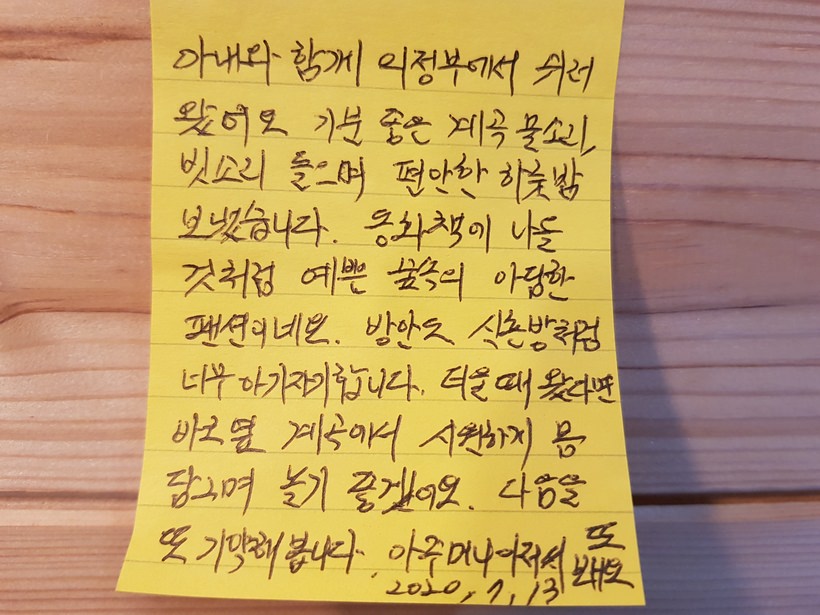 아내와 함께 의정부에서 쉬러
왔어요 기분 좋은 계곡 물소리,
빗소리 들으며 편안한 하룻밤
보냈습니다. 동화책에 나올
것처럼 예쁜 숲속의 아담한
팬션이네요. 방안도 신혼방처럼
너무 아기자기합니다. 더울 때 왔다면
바로 옆 계곡에서 시원하게 몸
담그며 놀기 좋겠어요. 다음을
또 기약해 봅니다. 아주머니 아저씨 또 봬요
2020, 7, 13